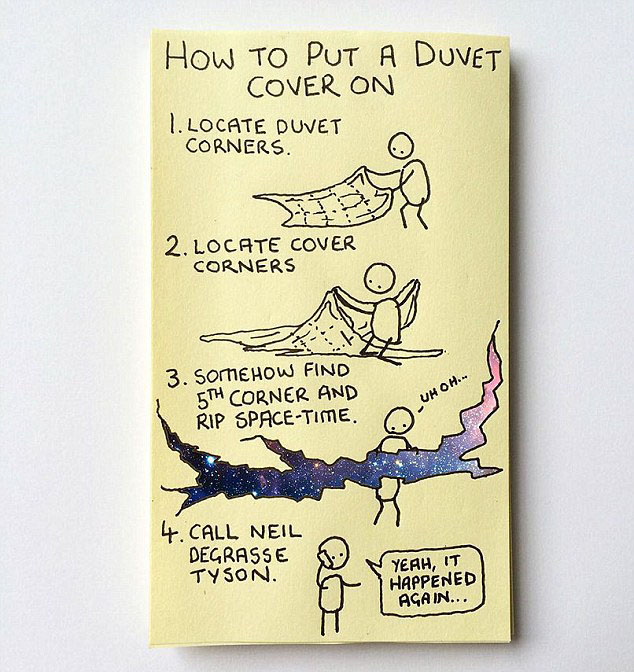 HOW TO PUT A DUVET
COVER ON
1. LOCATE DUVET
CORNERS.
2. LOCATE COVER
CORNERS
3. SOMEHOW FIND
5TH CORNER AND
RIP SPACE-TIME.
UH OH...
4. CALL NEIL
DEGRASSE
TYSON.
YEAH, IT
HAPPENED
AGAIN...